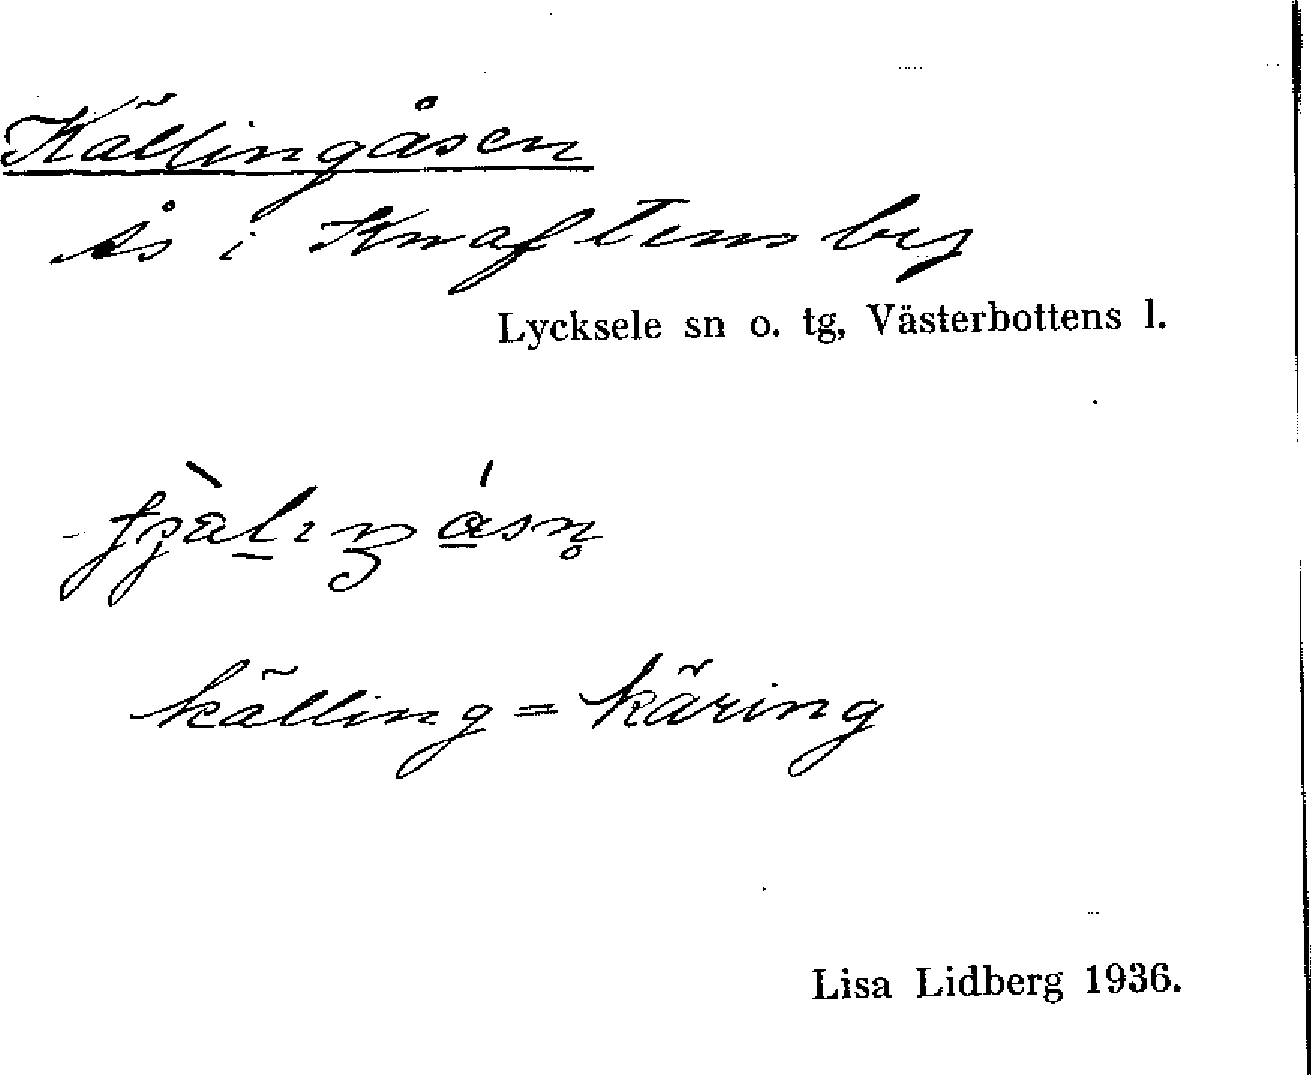 Källingåsen
Ås i Knaftens by
Lycksele sn o. tg, Västerbottens l.
källing = käring
Lisa Lidberg 1936.